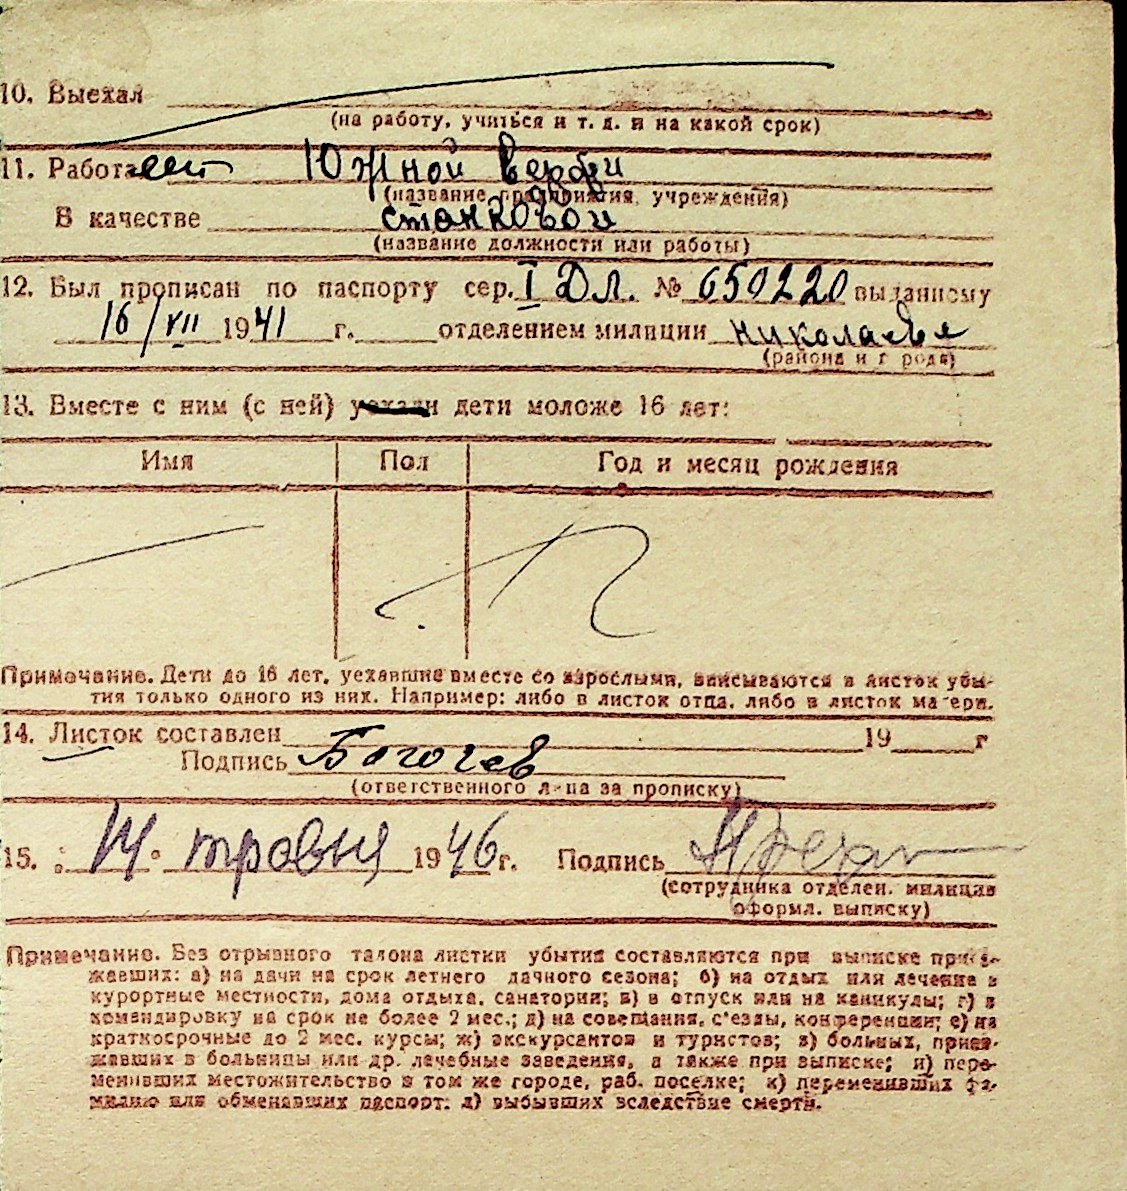 10. Выехал
(на работу, учиться и т. д. и на какой срок)
11. Работает Южной верфи
(название предприятия, учреждения)
В качестве становой
(название должности или работы)
12. Был прописан по паспорту сер. I ДЛ. № 650220 выданному
16/VII 1941 г. отделением милиции Николаевa
(района и города)
13. Вместе с ним (с ней) уехали дети моложе 16 лет:
Имя Пол Год и месяц рождения
Примечание. Дети до 16 лет, уехавшие вместе со взрослыми, вписываются в листок убы-
тия только одного из них. Например: либо в листок отца, либо в листок матери.
14. Листок составлен 19 г
Подпись Богочев
(ответственного лица за прописку)
15. 14 травня 1946 г. Подпись
(сотрудника отделен. милиции
оформл. выписку)
Примечание. Без отрывного талона листки убытия составляются при выписке приез-
жавших: а) на дачи на срок летнего дачного сезона; б) на отдых или лечение в
курортные местности, дома отдыха, санатории; в) в отпуск или на каникулы; г) в
командировку на срок не более 2 мес.; д) на совещания, с'езды, конференции; е) на
краткосрочные до 2 мес. курсы; ж) экскурсантов и туристов; з) больных, приез-
жавших в больницы или др. лечебные заведения, а также при выписке; и) пере-
менивших местожительство в том же городе, раб. поселке; к) переменивших фа-
милию или обменявших паспорт; л) выбывших вследствие смерти.